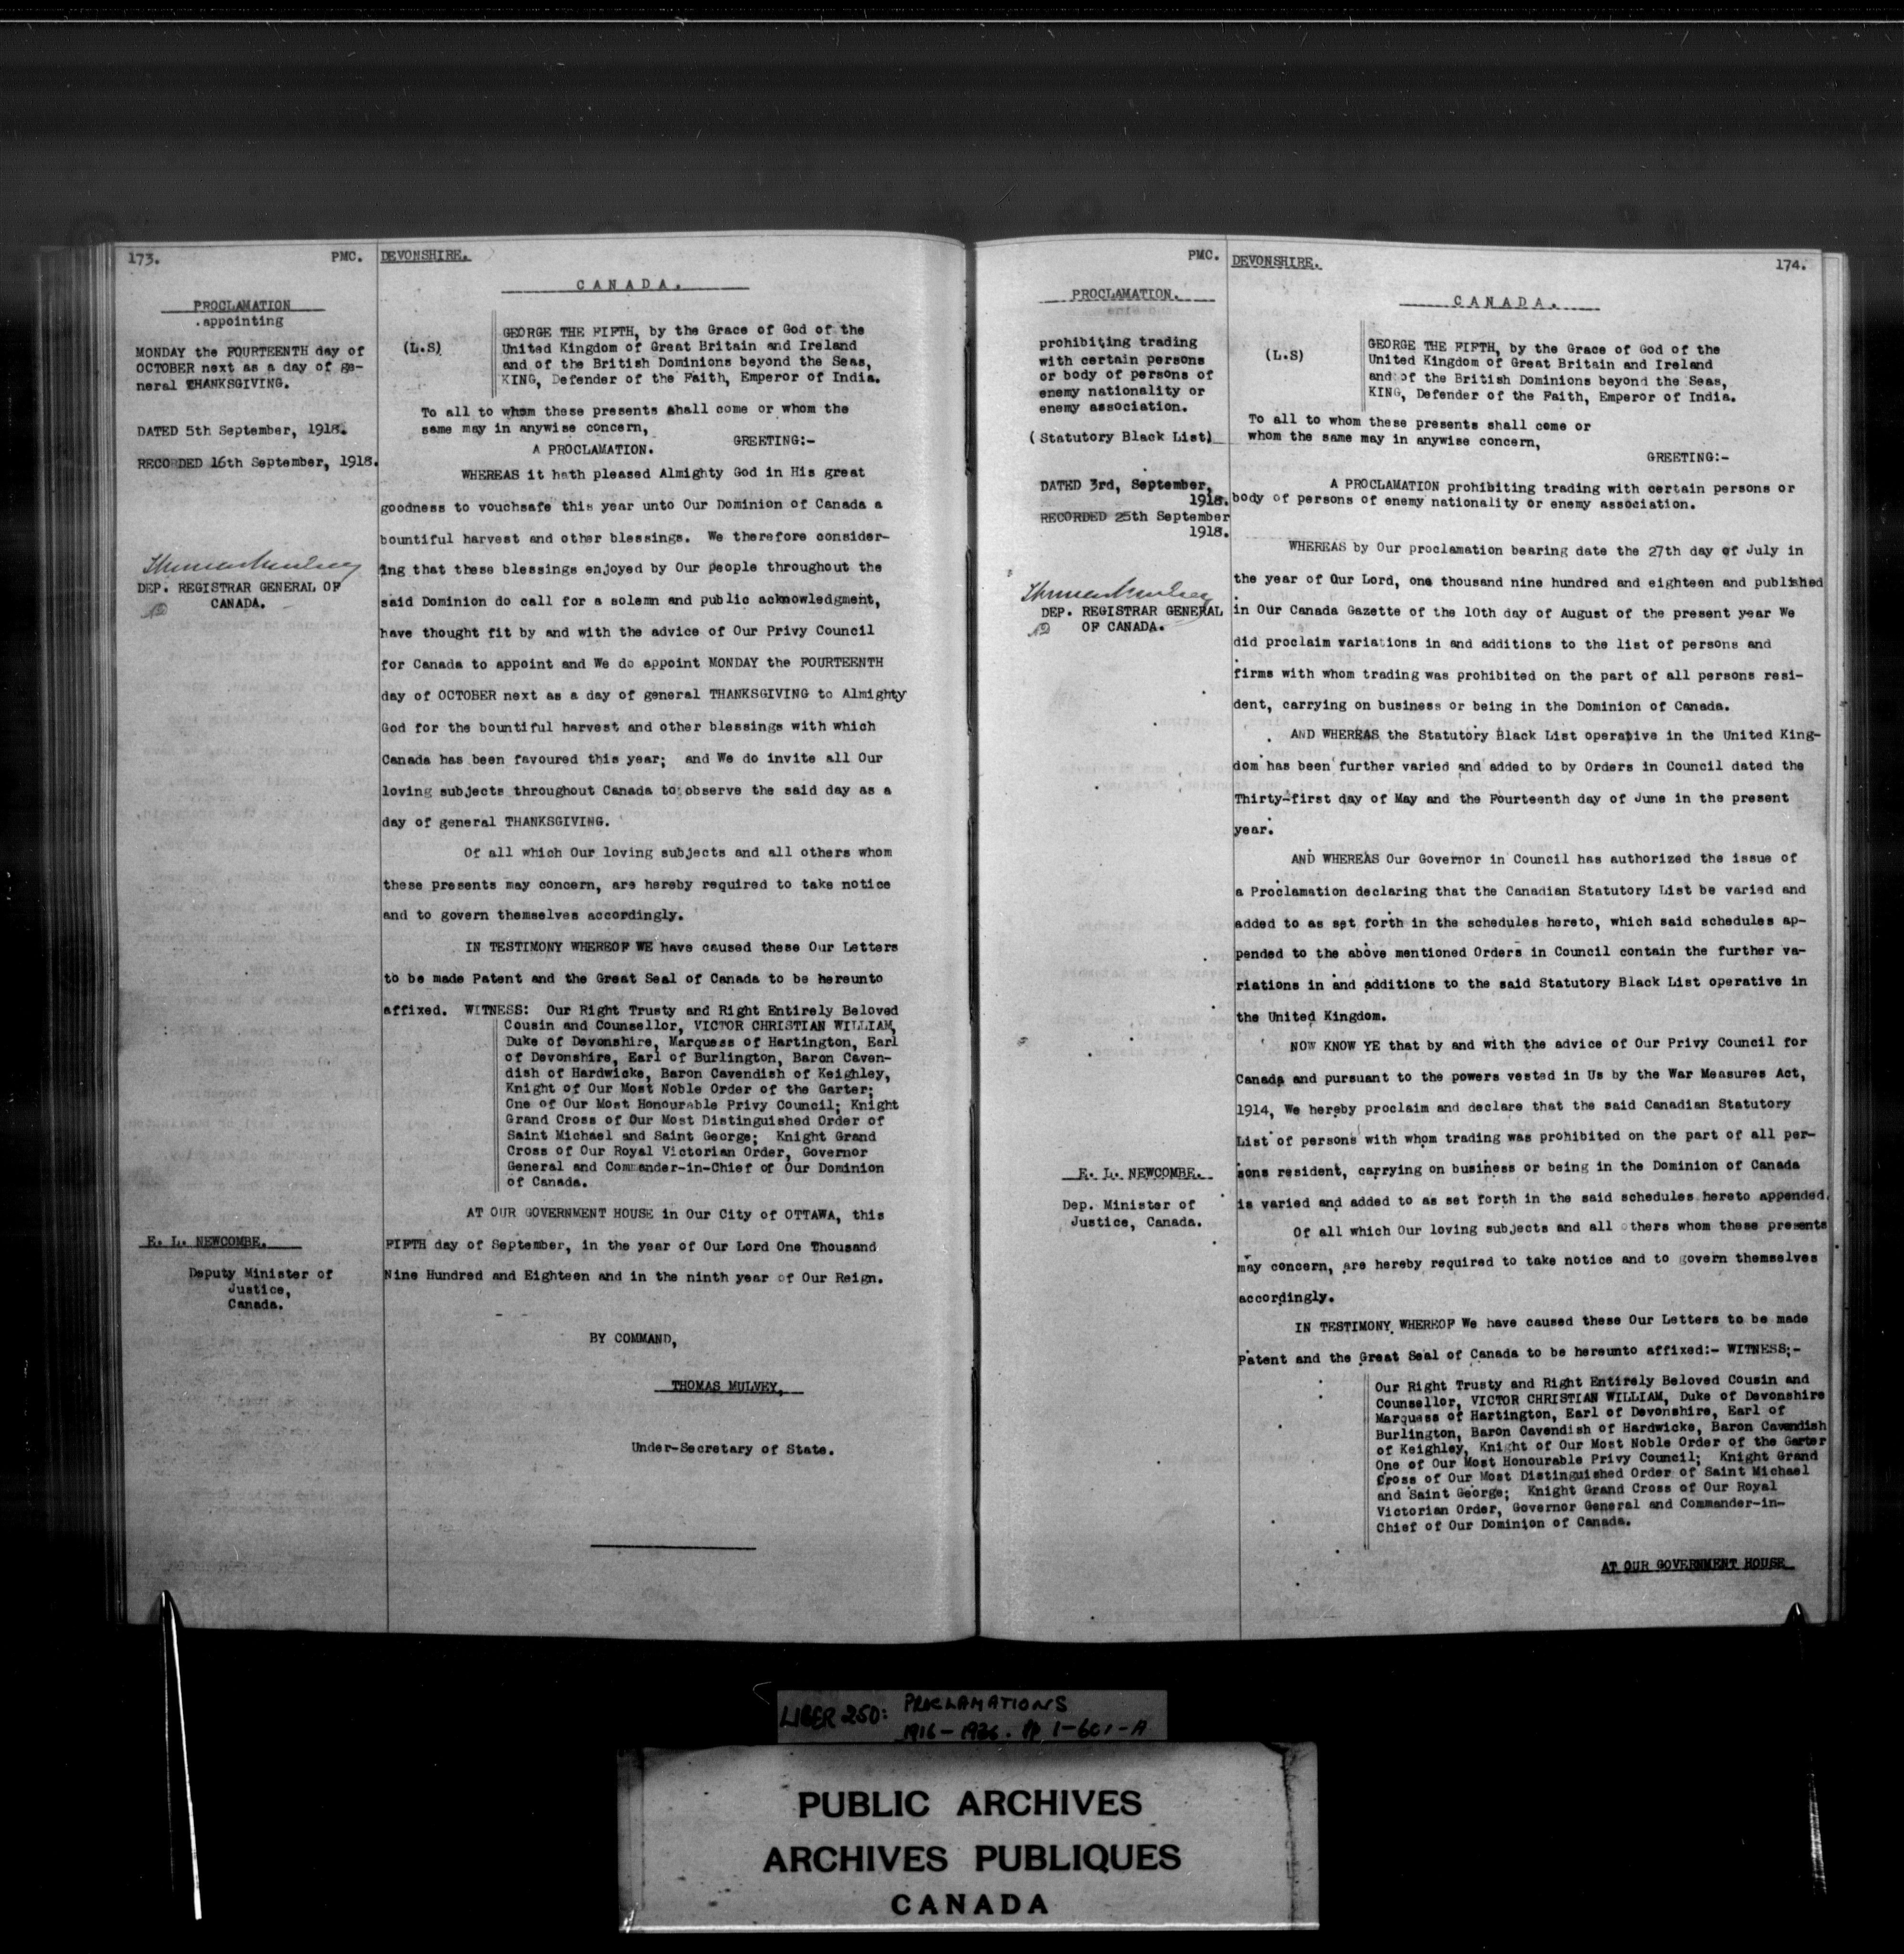 173.
PMC.
PROCLAMATION
appointing
MONDAY the FOURTEENTH day of
OCTOBER next as a day of ge-
neral THANKSGIVING.
DATED 5th September, 1918.
RECORDED 16th September, 1918.
Thomas Mulvey
DEP. REGISTRAR GENERAL OF
CANADA.
E. L. NEWCOMBE.
Deputy Minister of
Justice,
Canada.
DEVONSHIRE.
CANADA.
(L.S)
GEORGE THE FIFTH, by the Grace of God of the
United Kingdom of Great Britain and Ireland
and of the British Dominions beyond the Seas,
KING, Defender of the Faith, Emperor of India.
To all to whom these presents shall come or whom the
same may in anywise concern,
GREETING:-
A PROCLAMATION.
WHEREAS it hath pleased Almighty God in His great
goodness to vouchsafe this year unto Our Dominion of Canada a
bountiful harvest and other blessings. We therefore consider-
ing that these blessings enjoyed by Our people throughout the
said Dominion do call for a solemn and public acknowledgment,
have thought fit by and with the advice of Our Privy Council
for Canada to appoint and We do appoint MONDAY the FOURTEENTH
day of OCTOBER next as a day of general THANKSGIVING to Almighty
God for the bountiful harvest and other blessings with which
Canada has been favoured this year; and We do invite all Our
loving subjects throughout Canada to observe the said day as a
day of general THANKSGIVING.
Of all which Our loving subjects and all others whom
these presents may concern, are hereby required to take notice
and to govern themselves accordingly.
IN TESTIMONY WHEREOF WE have caused these Our Letters
to be made Patent and the Great Seal of Canada to be hereunto
affixed. WITNESS: Our Right Trusty and Right Entirely Beloved
Cousin and Counsellor, VICTOR CHRISTIAN WILLIAM,
Duke of Devonshire, Marquess of Hartington, Earl
of Devonshire, Earl of Burlington, Baron Caven-
dish of Hardwicke, Baron Cavendish of Keighley,
Knight of Our Most Noble Order of the Garter;
One of Our Most Honourable Privy Council; Knight
Grand Cross of Our Most Distinguished Order of
Saint Michael and Saint George; Knight Grand
Cross of Our Royal Victorian Order, Governor
General and Commander-in-Chief of Our Dominion
of Canada.
AT OUR GOVERNMENT HOUSE in Our City of OTTAWA, this
FIFTH day of September, in the year of Our Lord One Thousand
Nine Hundred and Eighteen and in the ninth year of Our Reign.
BY COMMAND,
THOMAS MULVEY,
Under-Secretary of State.
PMC.
PROCLAMATION.
prohibiting trading
with certain persons
or body of persons of
enemy nationality or
enemy association.
(Statutory Black List)
DATED 3rd, September,
1918.
RECORDED 25th September
1918.
Thomas Mulvey
DEP. REGISTRAR GENERAL
OF CANADA.
E. L. NEWCOMBE.
Dep. Minister of
Justice, Canada.
DEVONSHIRE.
174.
CANADA.
(L.S)
GEORGE THE FIFTH, by the Grace of God of the
United Kingdom of Great Britain and Ireland
and of the British Dominions beyond the Seas,
KING, Defender of the Faith, Emperor of India.
To all to whom these presents shall come or
whom the same may in anywise concern,
GREETING:-
A PROCLAMATION prohibiting trading with certain persons or
body of persons of enemy nationality or enemy association.
WHEREAS by Our proclamation bearing date the 27th day of July in
the year of Our Lord, one thousand nine hundred and eighteen and published
in Our Canada Gazette of the 10th day of August of the present year We
did proclaim variations in and additions to the list of persons and
firms with whom trading was prohibited on the part of all persons resi-
dent, carrying on business or being in the Dominion of Canada.
AND WHEREAS the Statutory Black List operative in the United King-
dom has been further varied and added to by Orders in Council dated the
Thirty-first day of May and the Fourteenth day of June in the present
year.
AND WHEREAS Our Governor in Council has authorized the issue of
a Proclamation declaring that the Canadian Statutory List be varied and
added to as set forth in the schedules hereto, which said schedules ap-
pended to the above mentioned Orders in Council contain the further va-
riations in and additions to the said Statutory Black List operative in
the United Kingdom.
NOW KNOW YE that by and with the advice of Our Privy Council for
Canada and pursuant to the powers vested in Us by the War Measures Act,
1914, We hereby proclaim and declare that the said Canadian Statutory
List of persons with whom trading was prohibited on the part of all per-
sons resident, carrying on business or being in the Dominion of Canada
is varied and added to as set forth in the said schedules hereto appended.
Of all which Our loving subjects and all others whom these presents
may concern, are hereby required to take notice and to govern themselves
accordingly.
IN TESTIMONY WHEREOF We have caused these Our Letters to be made
Patent and the Great Seal of Canada to be hereunto affixed:- WITNESS:-
Our Right Trusty and Right Entirely Beloved Cousin and
Counsellor, VICTOR CHRISTIAN WILLIAM, Duke of Devonshire
Marquess of Hartington, Earl of Devonshire, Earl of
Burlington, Baron Cavendish of Hardwicke, Baron Cavendish
of Keighley, Knight of Our Most Noble Order of the Garter
One of Our Most Honourable Privy Council; Knight Grand
Cross of Our Most Distinguished Order of Saint Michael
and Saint George; Knight Grand Cross of Our Royal
Victorian Order, Governor General and Commander-in-
Chief of Our Dominion of Canada.
AT OUR GOVERNMENT HOUSE
LIBER 250: PROCLAMATIONS
1916-1936. pp 1-601-A
PUBLIC ARCHIVES
ARCHIVES PUBLIQUES
CANADA